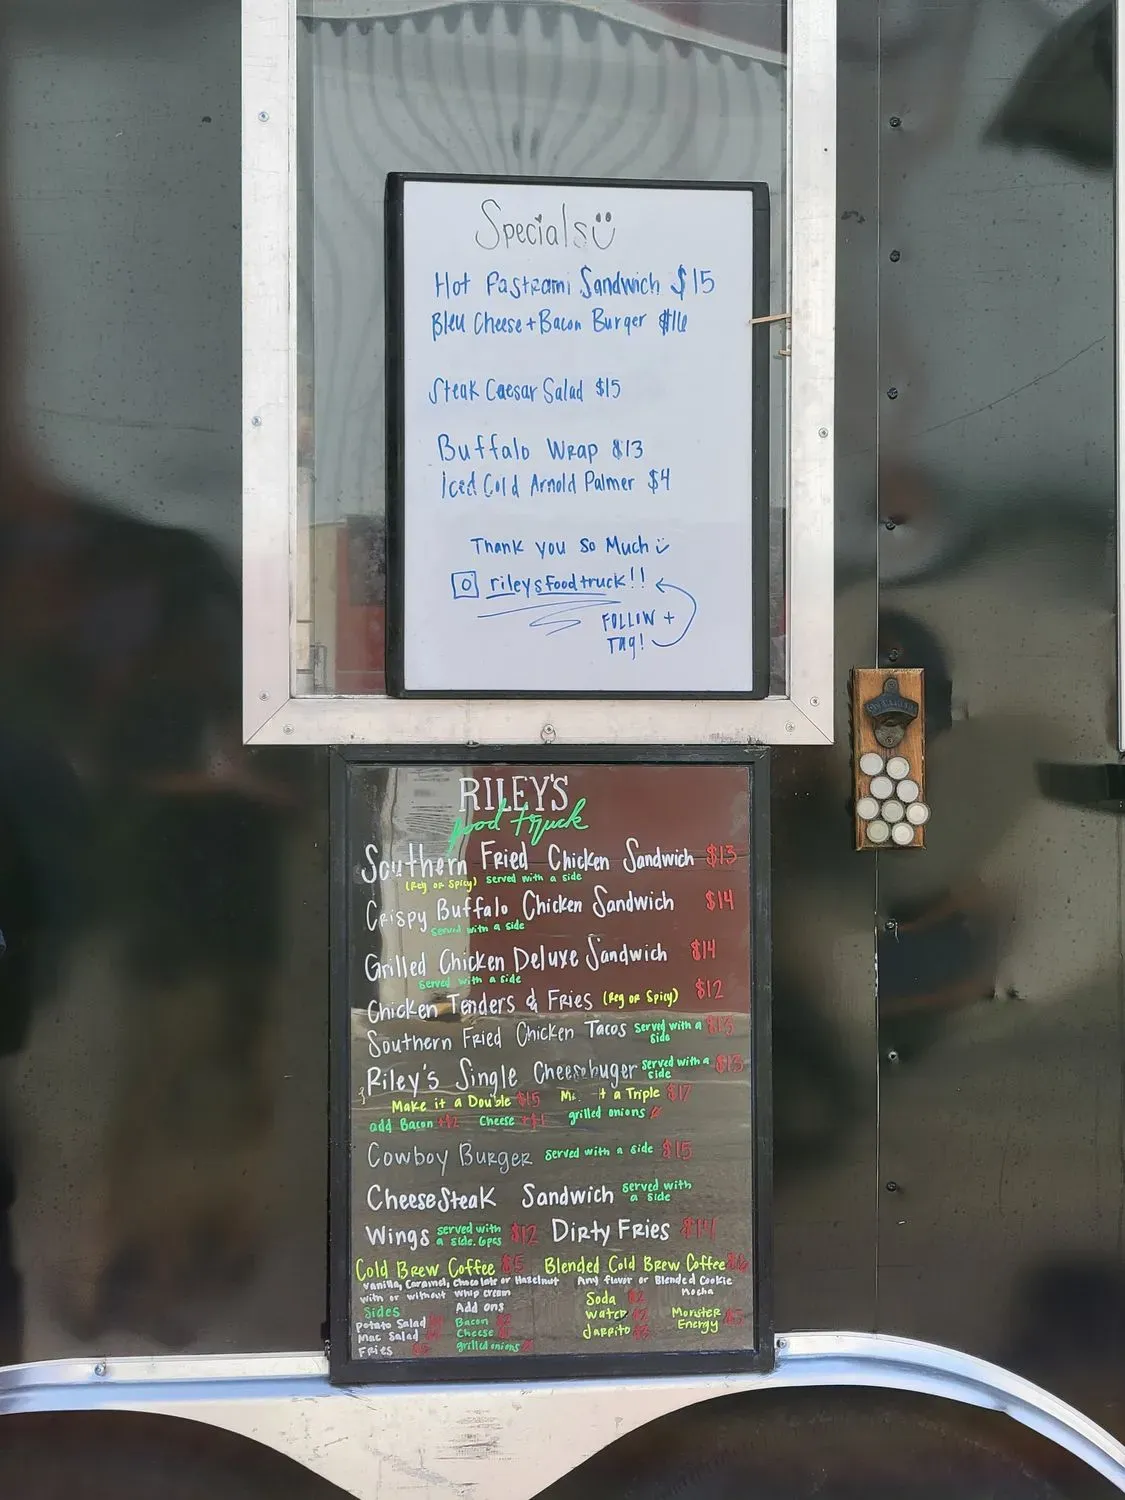 Specials
Hot Pastrami Sandwich $15
Bleu Cheese + Bacon Burger $16
Steak Caesar Salad $15
Buffalo Wrap $13
Iced Cold Arnold Palmer $4
Thank you so Much
rileysfoodtruck!!
FOLLOW +
Tag!
RILEY'S
food truck
Southern Fried Chicken Sandwich $13
(Reg or Spicy) served with a side
Crispy Buffalo Chicken Sandwich $14
served with a side
Grilled Chicken Deluxe Sandwich $14
served with a side
Chicken Tenders & Fries (Reg or Spicy) $12
Southern Fried Chicken Tacos served with a side $13
Riley's Single Cheesebuger served with a side $13
Make it a Double $15 a Triple $17
add Bacon +$2 Cheese +$1 grilled onions
Cowboy Burger served with a side $15
CheeseSteak Sandwich served with a side
Wings served with a side. 6pcs $12 Dirty Fries $14
Cold Brew Coffee $5 Blended Cold Brew Coffee
Vanilla, Caramel, Chocolate or Hazelnut Any flavor or Blended Cookie
with or without whip cream Mocha
Sides Add ons Soda $2
Potato Salad Bacon Water Monster
Mac Salad Cheese Jarrito Energy
Fries grilled onions